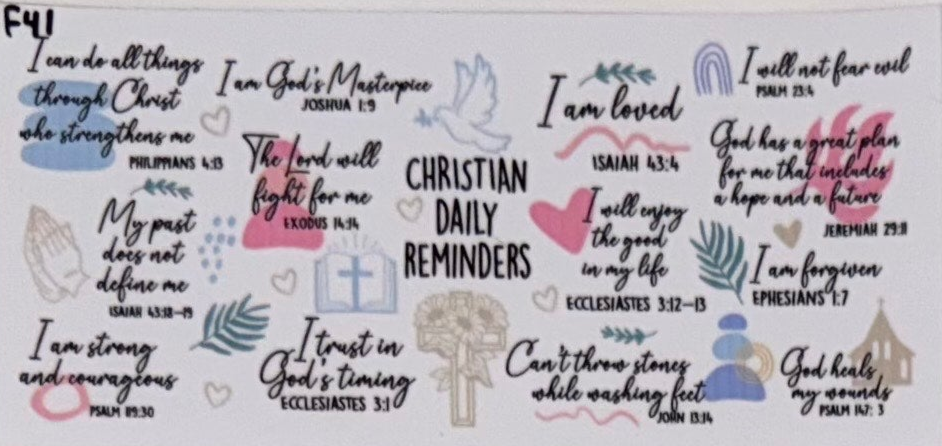 F41
I can do all things
through Christ
who strengthens me
PHILIPPIANS 4:13
I am God's Masterpiece
JOSHUA 1:9
The Lord will
fight for me
EXODUS 14:14
My past
does not
define me
ISAIAH 43:18-19
I am strong
and courageous
PSALM 119:30
I trust in
God's timing
ECCLESIASTES 3:1
CHRISTIAN
DAILY
REMINDERS
I am loved
ISAIAH 43:4
I will enjoy
the good
in my life
ECCLESIASTES 3:12-13
Can't throw stones
while washing feet
JOHN 13:14
I will not fear evil
PSALM 23:4
God has a great plan
for me that includes
a hope and a future
JEREMIAH 29:11
I am forgiven
EPHESIANS 1:7
God heals
my wounds
PSALM 147: 3